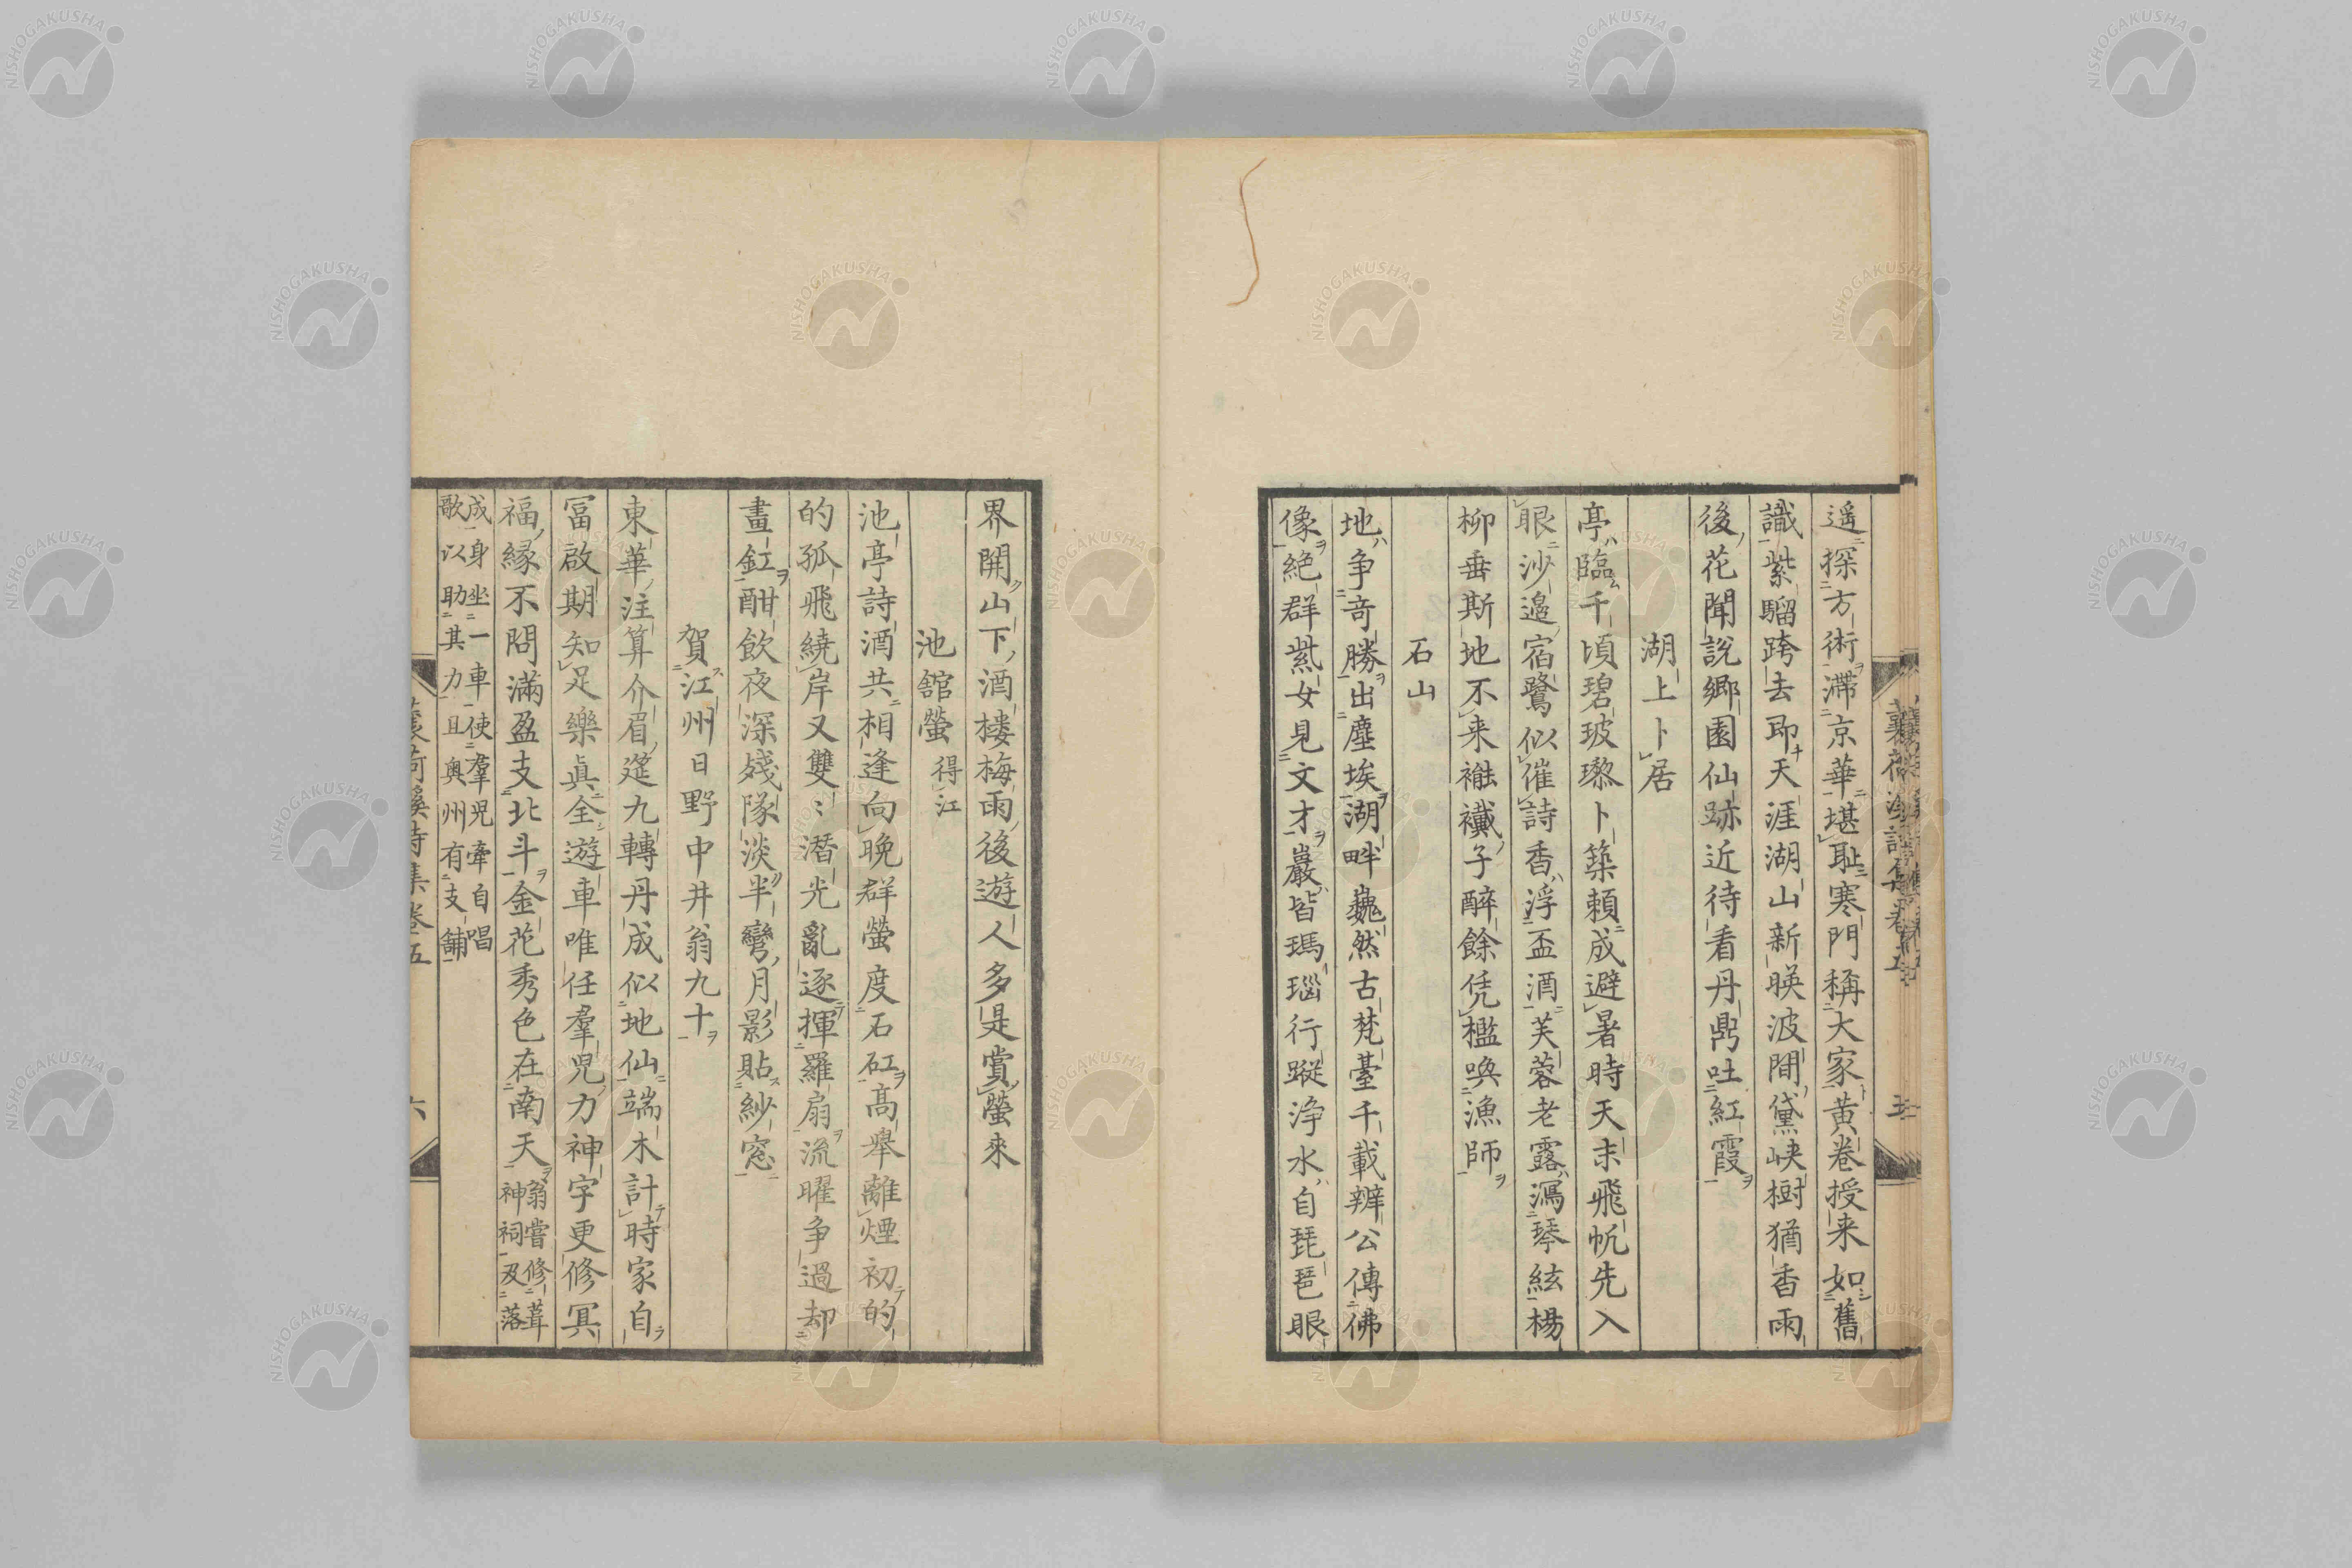 遥探方術滞京華堪耻寒門稱大家黄卷授来如舊
識紫騮跨去即天涯湖山新暎波間黛峽樹猶香雨
後花聞說郷園仙跡近待看丹鼎吐紅霞
湖上卜居
亭臨千頃碧玻瓈卜築頼成避暑時天末飛帆先入
眼沙邉宿鷺似催詩香浮盃酒芙蓉老露瀉琴絃楊
柳垂斯地不来褦襶子醉餘凭檻喚漁師
石山
地争竒勝出塵埃湖畔巍然古梵臺千載辨公傳佛
像絶群紫女見文才巖皆瑪瑙行蹤浄水自琵琶眼
界開山下酒楼梅雨後遊人多是賞螢來
池舘螢 得江
池亭詩酒共相逢向晩群螢度石矼高舉離煙初的
的孤飛繞岸又雙〻潜光亂逐揮羅扇流曜争過却
畫釭酣飲夜深殘隊淡半彎月影貼紗窓
賀江州日野中井翁九十
東華注算介眉筵九轉丹成似地仙端木計時家自
冨啟期知足樂眞全遊車唯任羣兒力神字更修冥
福縁不問滿盈支北斗金花秀色在南天 翁嘗修葺
神祠及落
成身坐一車使羣兒牽自唱
歌以助其力且奥州有支舗
襄荷溪詩集卷五
六
五